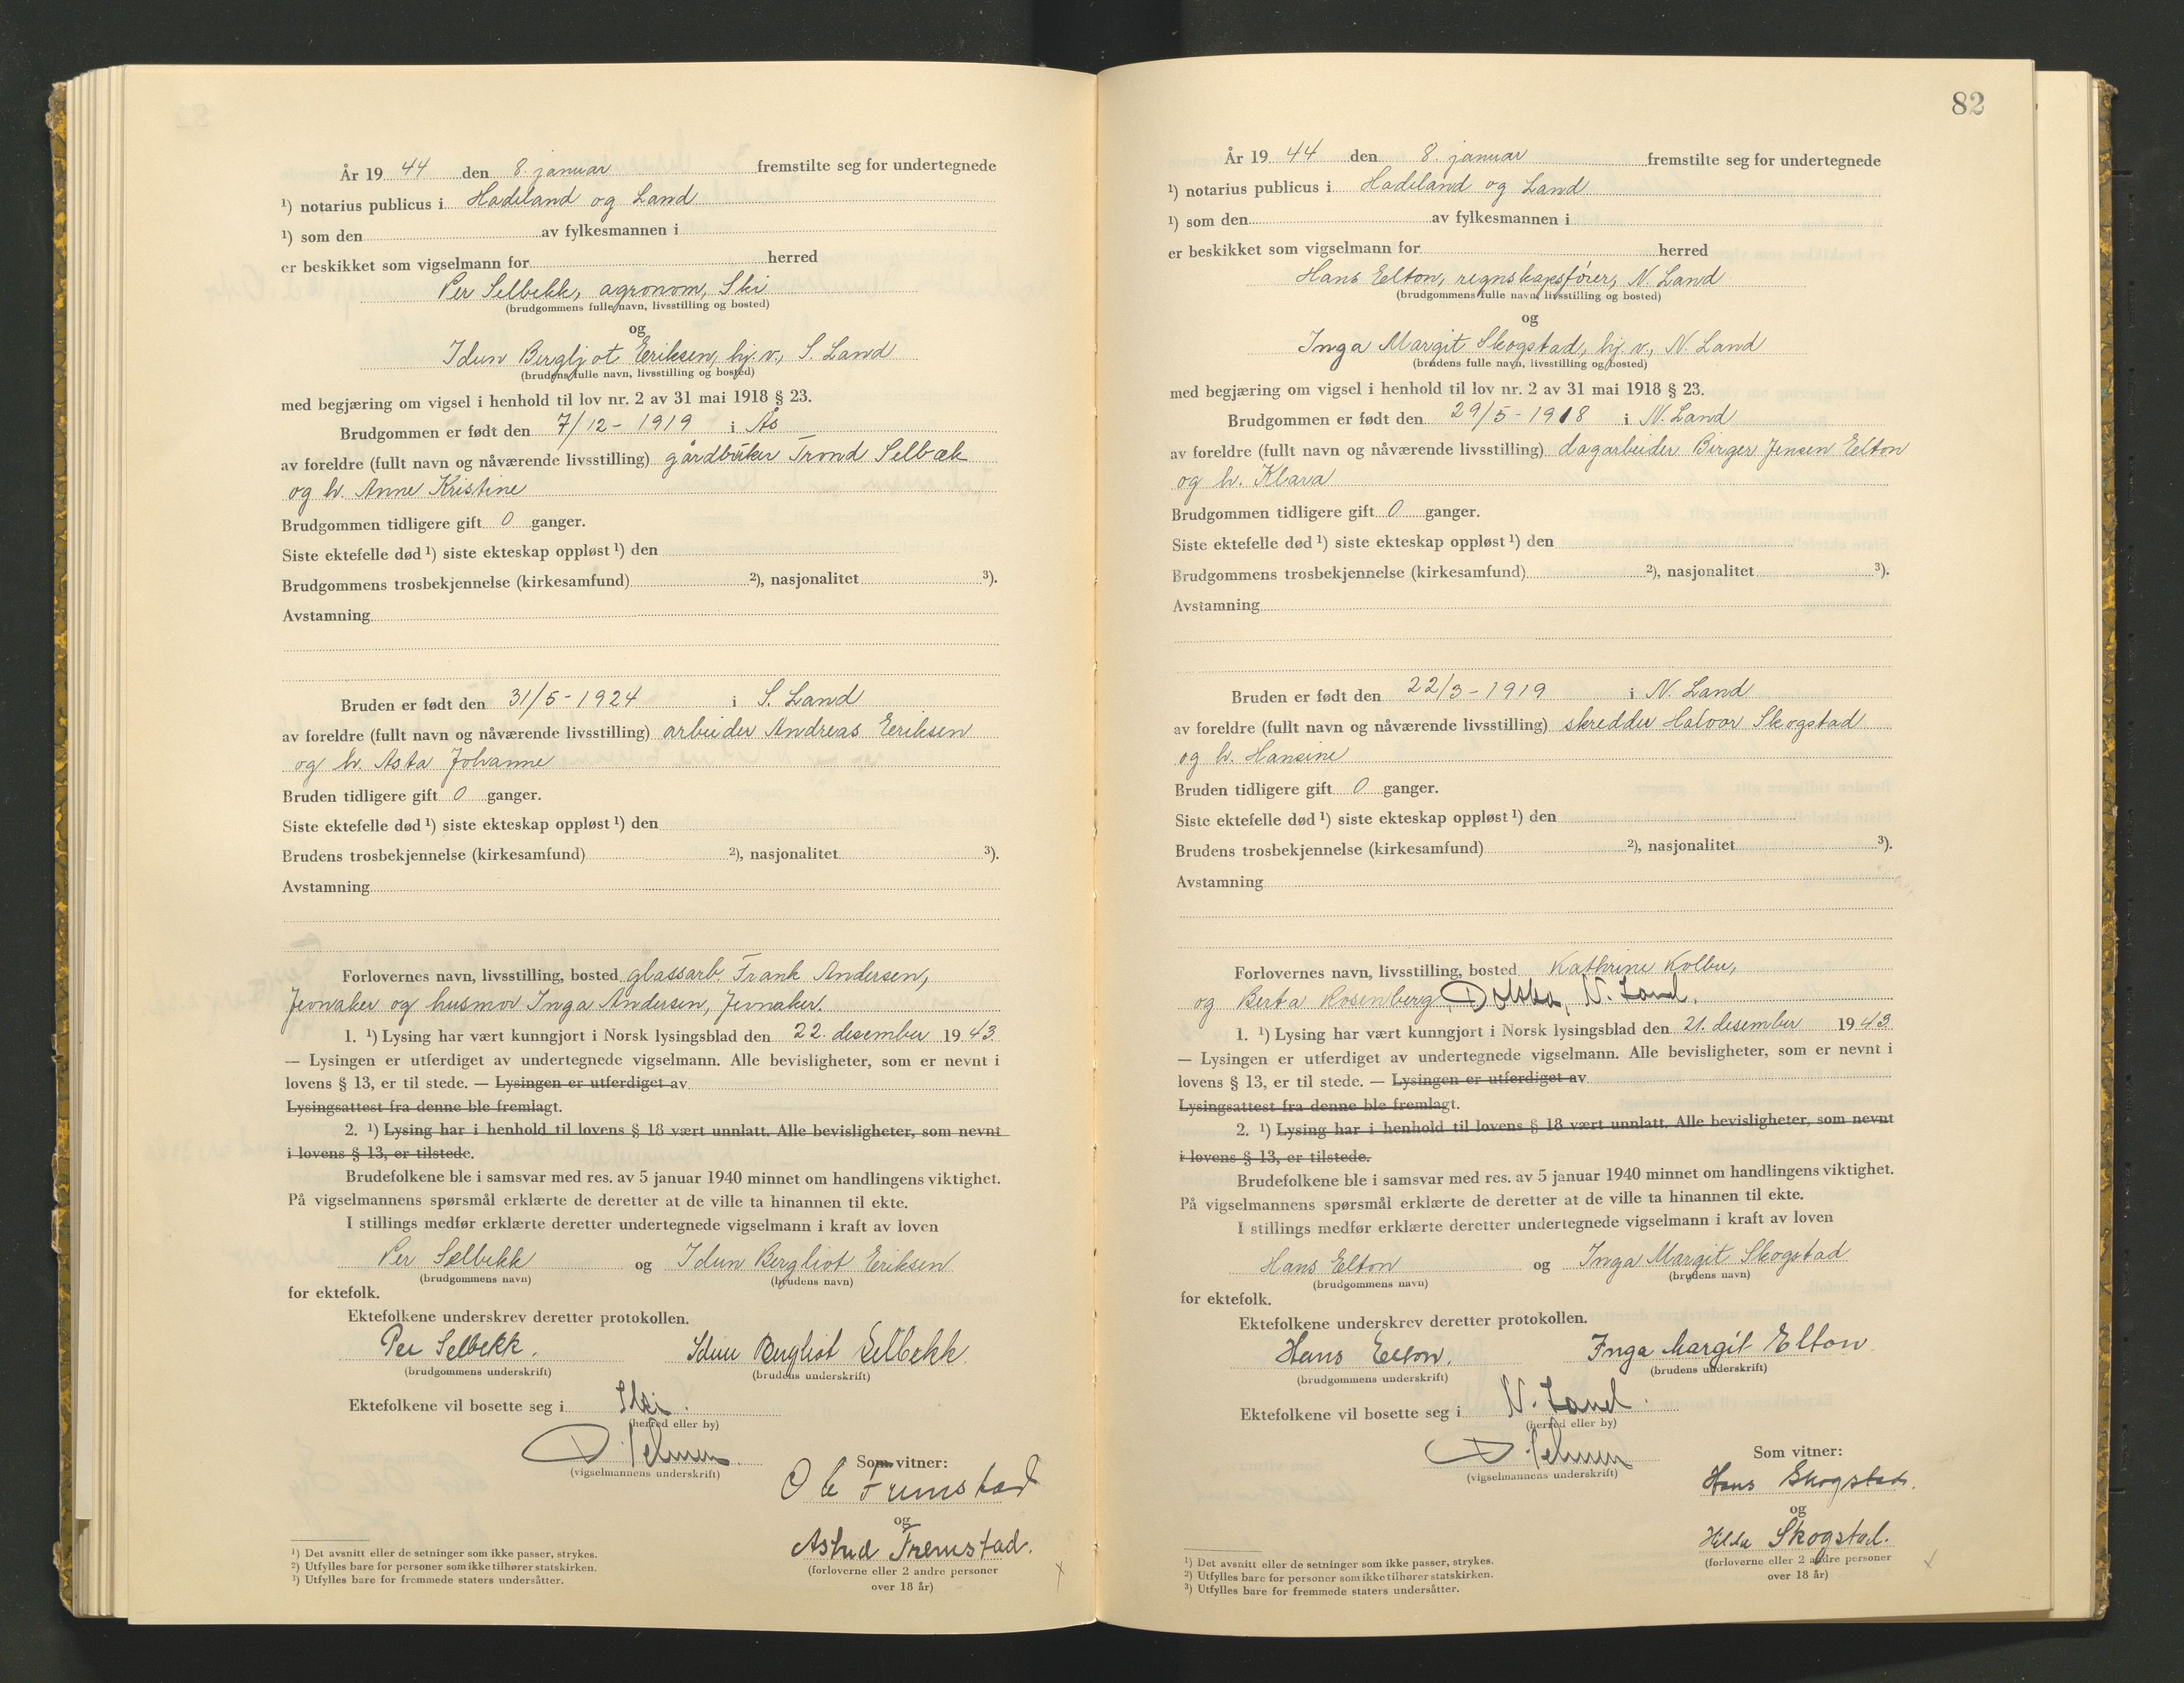 År 19 44 den 8. januar fremstilte seg for undertegnede
¹) notarius publicus i Hadeland og Land
¹) som den av fylkesmannen i
er beskikket som vigselmann for herred
Per Selbekk, agronom, Ski
(brudgommens fulle navn, livsstilling og bosted)
og
Idun Bergljot Eriksen, hj. v., S. Land
(brudens fulle navn, livsstilling og bosted)
med begjæring om vigsel i henhold til lov nr. 2 av 31 mai 1918 § 23.
Brudgommen er født den 7/12 - 1919 i Ås
av foreldre (fullt navn og nåværende livsstilling) gårdbruker Trond Selbæk
og h. Anne Kristine
Brudgommen tidligere gift 0 ganger.
Siste ektefelle død ¹) siste ekteskap oppløst ¹) den
Brudgommens trosbekjennelse (kirkesamfund) ²), nasjonalitet ³).
Avstamning
Bruden er født den 31/5 - 1924 i S. Land
av foreldre (fullt navn og nåværende livsstilling) arbeider Andreas Eriksen
og h. Asta Johanne
Bruden tidligere gift 0 ganger.
Siste ektefelle død ¹) siste ekteskap oppløst ¹) den
Brudens trosbekjennelse (kirkesamfund) ²), nasjonalitet ³).
Avstamning
Forlovernes navn, livsstilling, bosted glassarb. Frank Andersen,
Jevnaker og husmor Inga Andersen, Jevnaker.
1. ¹) Lysing har vært kunngjort i Norsk lysingsblad den 22. desember 19 43
— Lysingen er utferdiget av undertegnede vigselmann. Alle bevisligheter, som er nevnt i
lovens § 13, er til stede. — Lysingen er utferdiget av
Lysingsattest fra denne ble fremlagt.
2. ¹) Lysing har i henhold til lovens § 18 vært unnlatt. Alle bevisligheter, som nevnt
i lovens § 13, er tilstede.
Brudefolkene ble i samsvar med res. av 5 januar 1940 minnet om handlingens viktighet.
På vigselmannens spørsmål erklærte de deretter at de ville ta hinannen til ekte.
I stillings medfør erklærte deretter undertegnede vigselmann i kraft av loven
Per Selbekk og Idun Bergliot Eriksen
(brudgommens navn) (brudens navn)
for ektefolk.
Ektefolkene underskrev deretter protokollen.
Per Selbekk. Idun Bergliot Selbekk
(brudgommens underskrift) (brudens underskrift)
Ektefolkene vil bosette seg i Ski.
(herred eller by)
(vigselmannens underskrift)
Som vitner:
Ole Fremstad
og
Astrid Fremstad.
(forloverne eller 2 andre personer
over 18 år)
¹) Det avsnitt eller de setninger som ikke passer, strykes.
²) Utfylles bare for personer som ikke tilhører statskirken.
³) Utfylles bare for fremmede staters undersåtter.
82
År 19 44 den 8. januar fremstilte seg for undertegnede
¹) notarius publicus i Hadeland og Land
¹) som den av fylkesmannen i
er beskikket som vigselmann for herred
Hans Elton, regnskapsfører, N. Land
(brudgommens fulle navn, livsstilling og bosted)
og
Inga Margit Skogstad, hj. v., N. Land
(brudens fulle navn, livsstilling og bosted)
med begjæring om vigsel i henhold til lov nr. 2 av 31 mai 1918 § 23.
Brudgommen er født den 29/5 - 1918 i N. Land
av foreldre (fullt navn og nåværende livsstilling) dagarbeider Birger Jensen Elton
og h. Klara
Brudgommen tidligere gift 0 ganger.
Siste ektefelle død ¹) siste ekteskap oppløst ¹) den
Brudgommens trosbekjennelse (kirkesamfund) ²), nasjonalitet ³).
Avstamning
Bruden er født den 22/3 - 1919 i N. Land
av foreldre (fullt navn og nåværende livsstilling) skredder Halvor Skogstad
og h. Hansine
Bruden tidligere gift 0 ganger.
Siste ektefelle død ¹) siste ekteskap oppløst ¹) den
Brudens trosbekjennelse (kirkesamfund) ²), nasjonalitet ³).
Avstamning
Forlovernes navn, livsstilling, bosted Kathrine Kolbu,
og Berta Rosenberg, Dokka, N. Land.
1. ¹) Lysing har vært kunngjort i Norsk lysingsblad den 21. desember 19 43
— Lysingen er utferdiget av undertegnede vigselmann. Alle bevisligheter, som er nevnt i
lovens § 13, er til stede. — Lysingen er utferdiget av
Lysingsattest fra denne ble fremlagt.
2. ¹) Lysing har i henhold til lovens § 18 vært unnlatt. Alle bevisligheter, som nevnt
i lovens § 13, er tilstede.
Brudefolkene ble i samsvar med res. av 5 januar 1940 minnet om handlingens viktighet.
På vigselmannens spørsmål erklærte de deretter at de ville ta hinannen til ekte.
I stillings medfør erklærte deretter undertegnede vigselmann i kraft av loven
Hans Elton og Inga Margit Skogstad
(brudgommens navn) (brudens navn)
for ektefolk.
Ektefolkene underskrev deretter protokollen.
Hans Elton. Inga Margit Elton
(brudgommens underskrift) (brudens underskrift)
Ektefolkene vil bosette seg i N. Land.
(herred eller by)
(vigselmannens underskrift)
Som vitner:
Hans Skogstad.
og
Hilda Skogstad.
(forloverne eller 2 andre personer
over 18 år)
¹) Det avsnitt eller de setninger som ikke passer, strykes.
²) Utfylles bare for personer som ikke tilhører statskirken.
³) Utfylles bare for fremmede staters undersåtter.